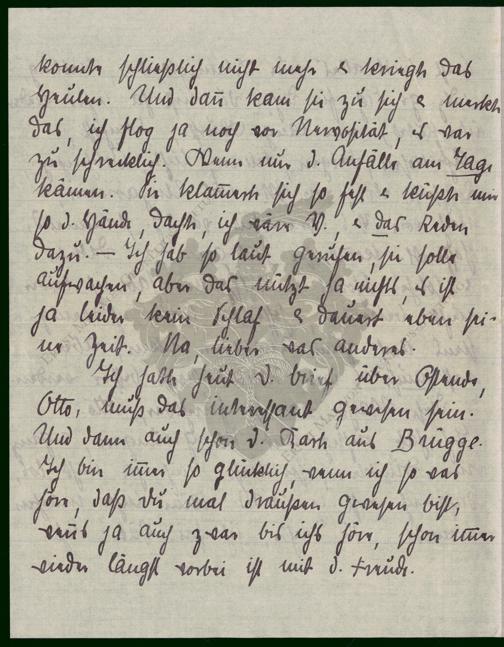 konnte schließlich nicht mehr & kriegte das
Heulen. Und dan̄ kam sie zu sich & merkte
das, ich flog ja noch vor Nervosität, es war
zu schrecklich. Wenn nur d. Anfälle am Tage
kämen. Sie klam̄erte sich so fest & küßte mir
so d. Hände, dachte, ich wäre V., & das Reden
dazu. — Ich hab so laut gerufen, sie solle
aufwachen, aber das nützt ja nichts, es ist
ja leider kein Schlaf & dauert eben sei-
ne Zeit. Na, lieber was anderes.
Ich hatte heut d. Brief über Ostende,
Otto, muß das interessant gewesen sein.
Und dann auch schon d. Karte aus Brügge.
Ich bin im̄er so glücklich, wenn ich so was
höre, daß du mal draußen gewesen bist,
wens ja auch zwar bis ichs höre, schon im̄er
wieder längst vorbei ist mit d. Freude.